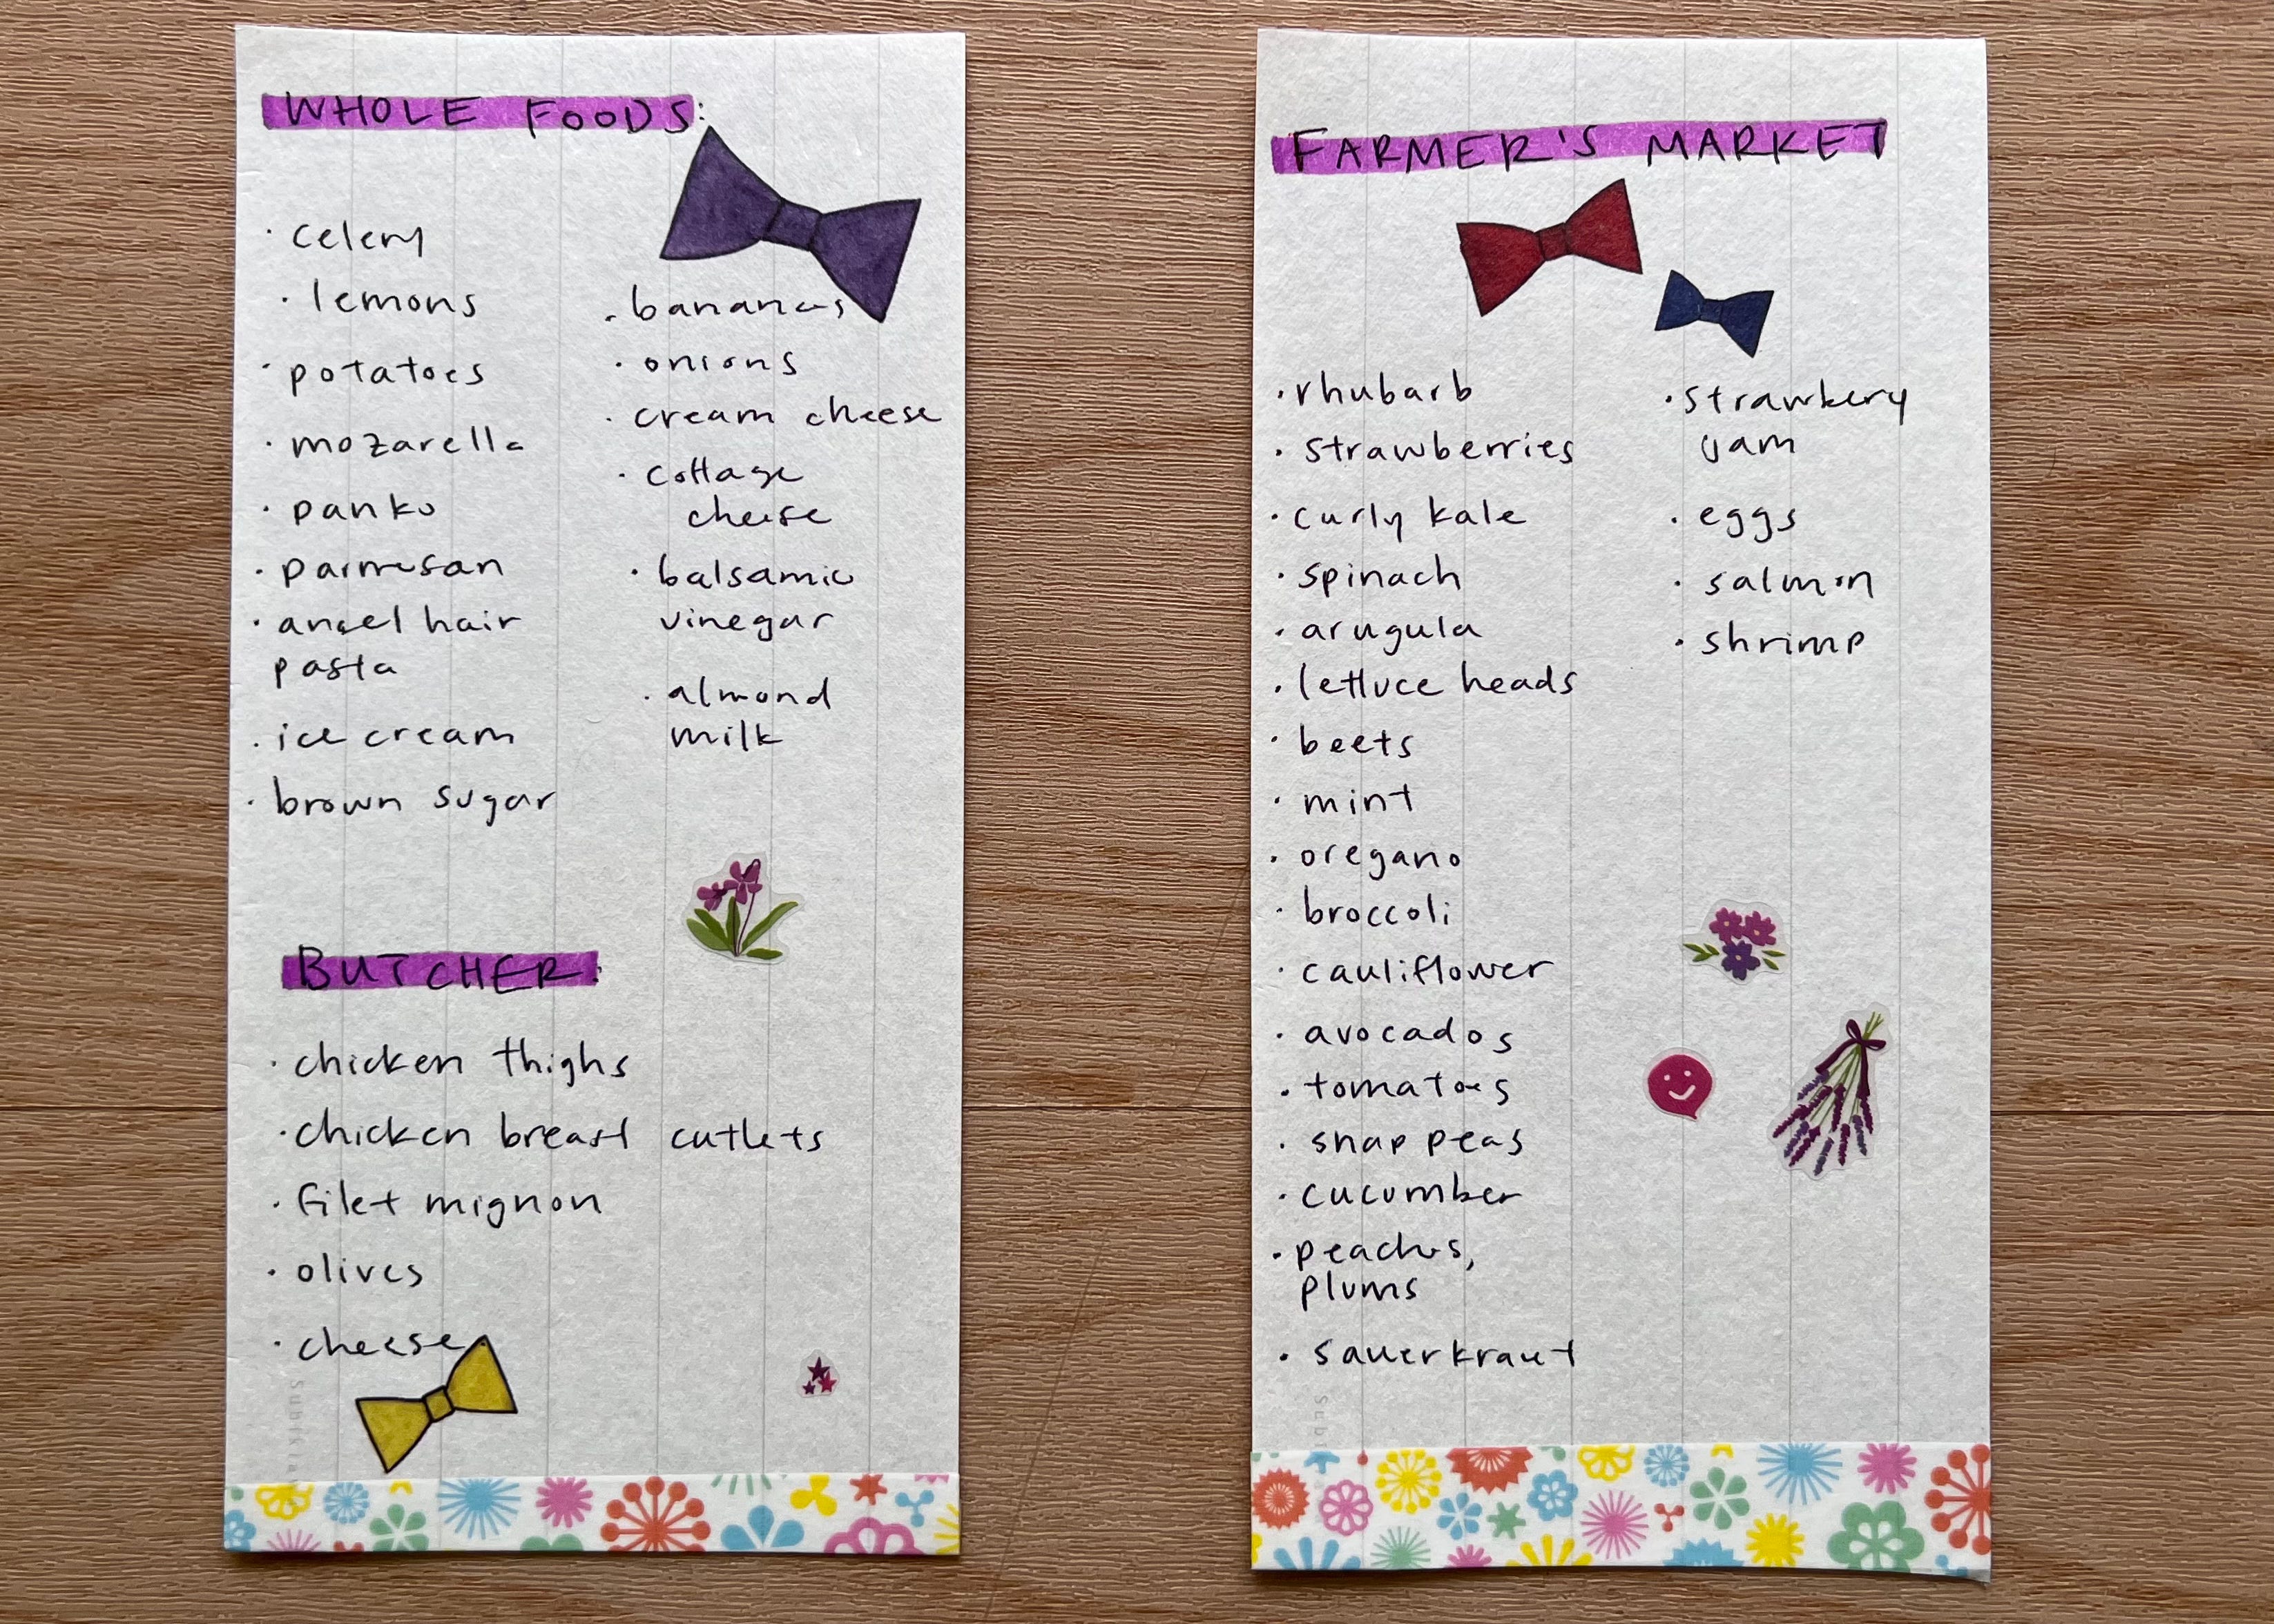 WHOLE FOODS:
· celery
· lemons
· potatoes
· mozarella
· panko
· parmesan
· angel hair
pasta
· ice cream
· brown sugar
· bananas
· onions
· cream cheese
· cottage
cheese
· balsamic
vinegar
· almond
milk
BUTCHER:
· chicken thighs
· chicken breast cutlets
· filet mignon
· olives
· cheese
FARMER'S MARKET
· rhubarb
· strawberries
· curly kale
· spinach
· arugula
· lettuce heads
· beets
· mint
· oregano
· broccoli
· cauliflower
· avocados
· tomatoes
· snap peas
· cucumber
· peaches,
plums
· sauerkraut
· strawbery
jam
· eggs
· salmon
· shrimp